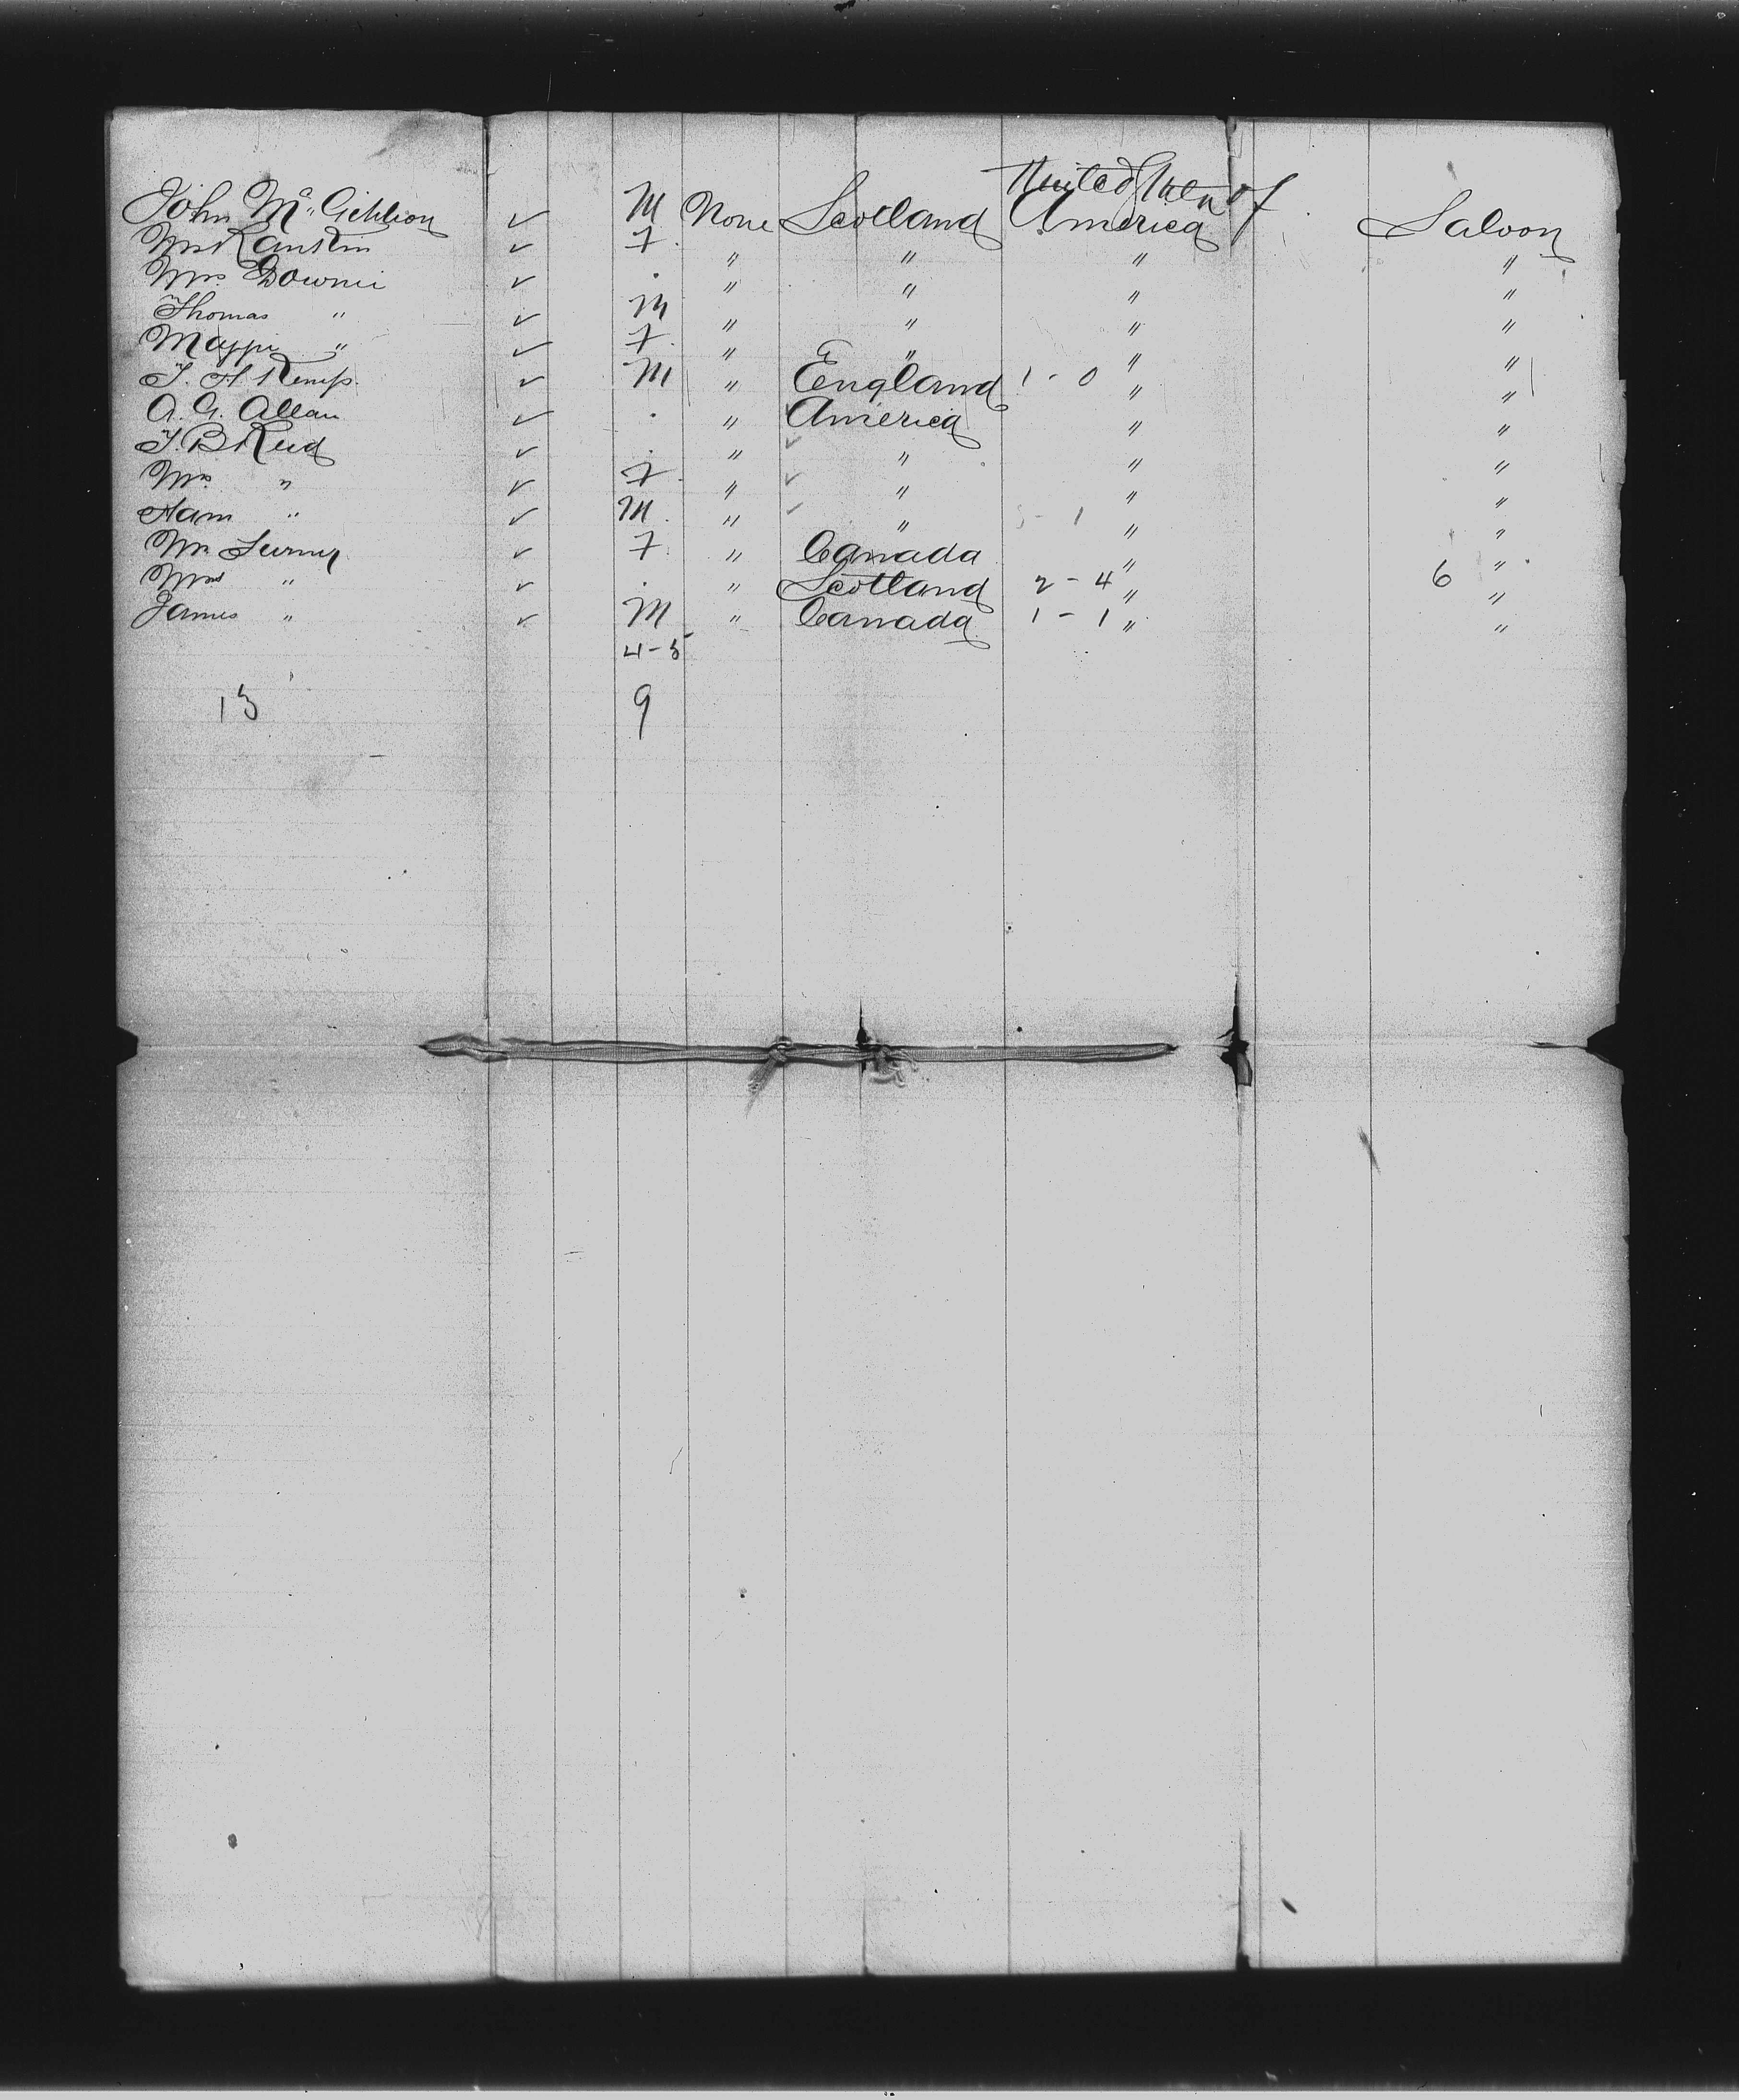 United States of
John Mc. Gehlion ✓ M None Scotland America Saloon
Mrs Rankin ✓ F. " " " "
Mrs. Downie ✓ . " " " "
Thomas " ✓ M " " " "
" ✓ F. " " " "
J. H. Kemp. ✓ M " England 1 - 0 " "
A. G. Allan ✓ . " America " "
J. B Reid ✓ . " ✓ " " "
Mrs " ✓ F " ✓ " " "
" ✓ M. " ✓ " - 1 " "
✓ F. " Canada " "
" ✓ . " Scotland 2 - 4 " 6 "
James " ✓ M " Canada 1 - 1 " "
4-5
13 9